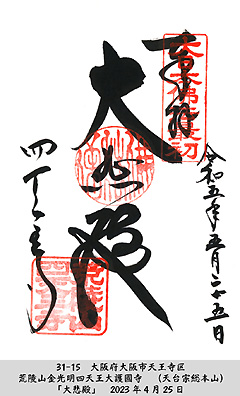 奉拝
令和五年五月二十五日
大悲殿
四天王寺
31-15 大阪府大阪市天王寺区
荒陵山金光明四天王大護國寺 (天台宗総本山)
「大悲殿」 2023年4月25日